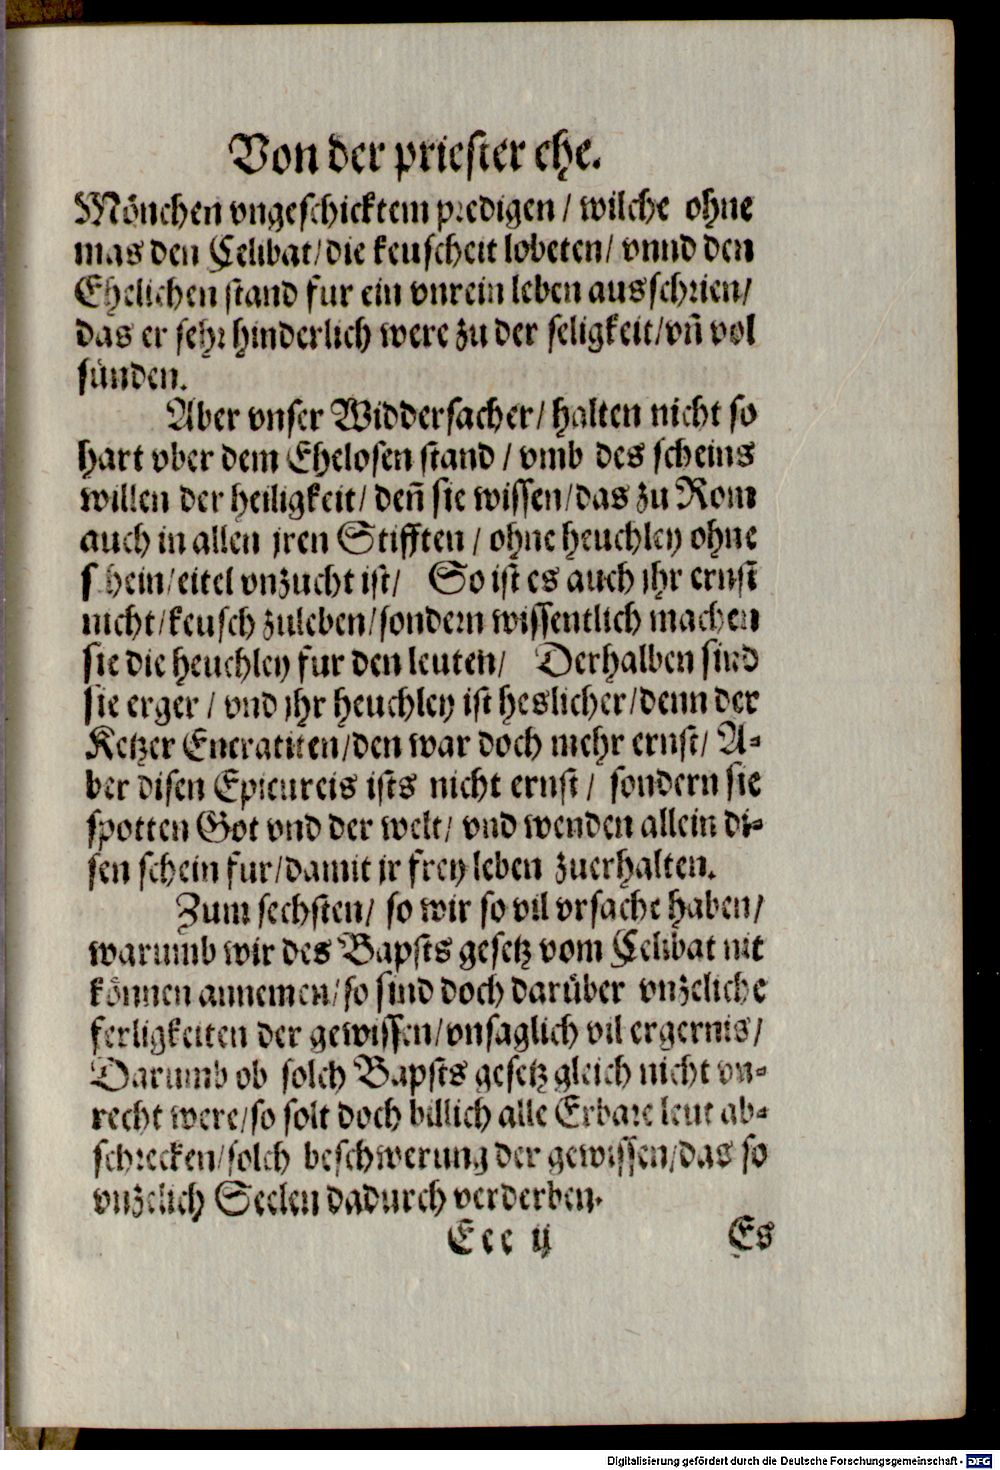 Von der priester ehe.
Mönchen vngeschicktem predigen / wilche ohne
mas den Celibat / die keuscheit lobeten / vnnd den
Ehelichen stand fur ein vnrein leben ausschrien /
das er sehr hinderlich were zu der seligkeit / vñ vol
sünden.
Aber vnser Widdersacher / halten nicht so
hart vber dem Ehelosen stand / vmb des scheins
willen der heiligkeit / deñ sie wissen / das zu Rom
auch in allen jren Stifften / ohne heuchley ohne
s hein / eitel vnzucht ist / So ist es auch jhr ernst
nicht / keusch zuleben / sondern wissentlich machen
sie die heuchley fur den leuten / Derhalben sind
sie erger / vnd jhr heuchley ist heslicher / denn der
Ketzer Encratiten / den war doch mehr ernst / A-
ber disen Epicureis ists nicht ernst / sondern sie
spotten Got vnd der welt / vnd wenden allein di-
sen schein fur / damit jr frey leben zuerhalten.
Zum sechsten / so wir so vil vrsache haben /
warumb wir des Bapsts gesetz vom Celibat nit
können annemen / so sind doch darüber vnzeliche
ferligkeiten der gewissen / vnsaglich vil ergernis /
Darumb ob solch Bapsts gesetz gleich nicht vn-
recht were / so solt doch billich alle Erbare leut ab-
schrecken / solch beschwerung der gewissen / das so
vnzelich Seelen dadurch verderben.
Eee ij Es
Digitalisierung gefördert durch die Deutsche Forschungsgemeinschaft - DFG